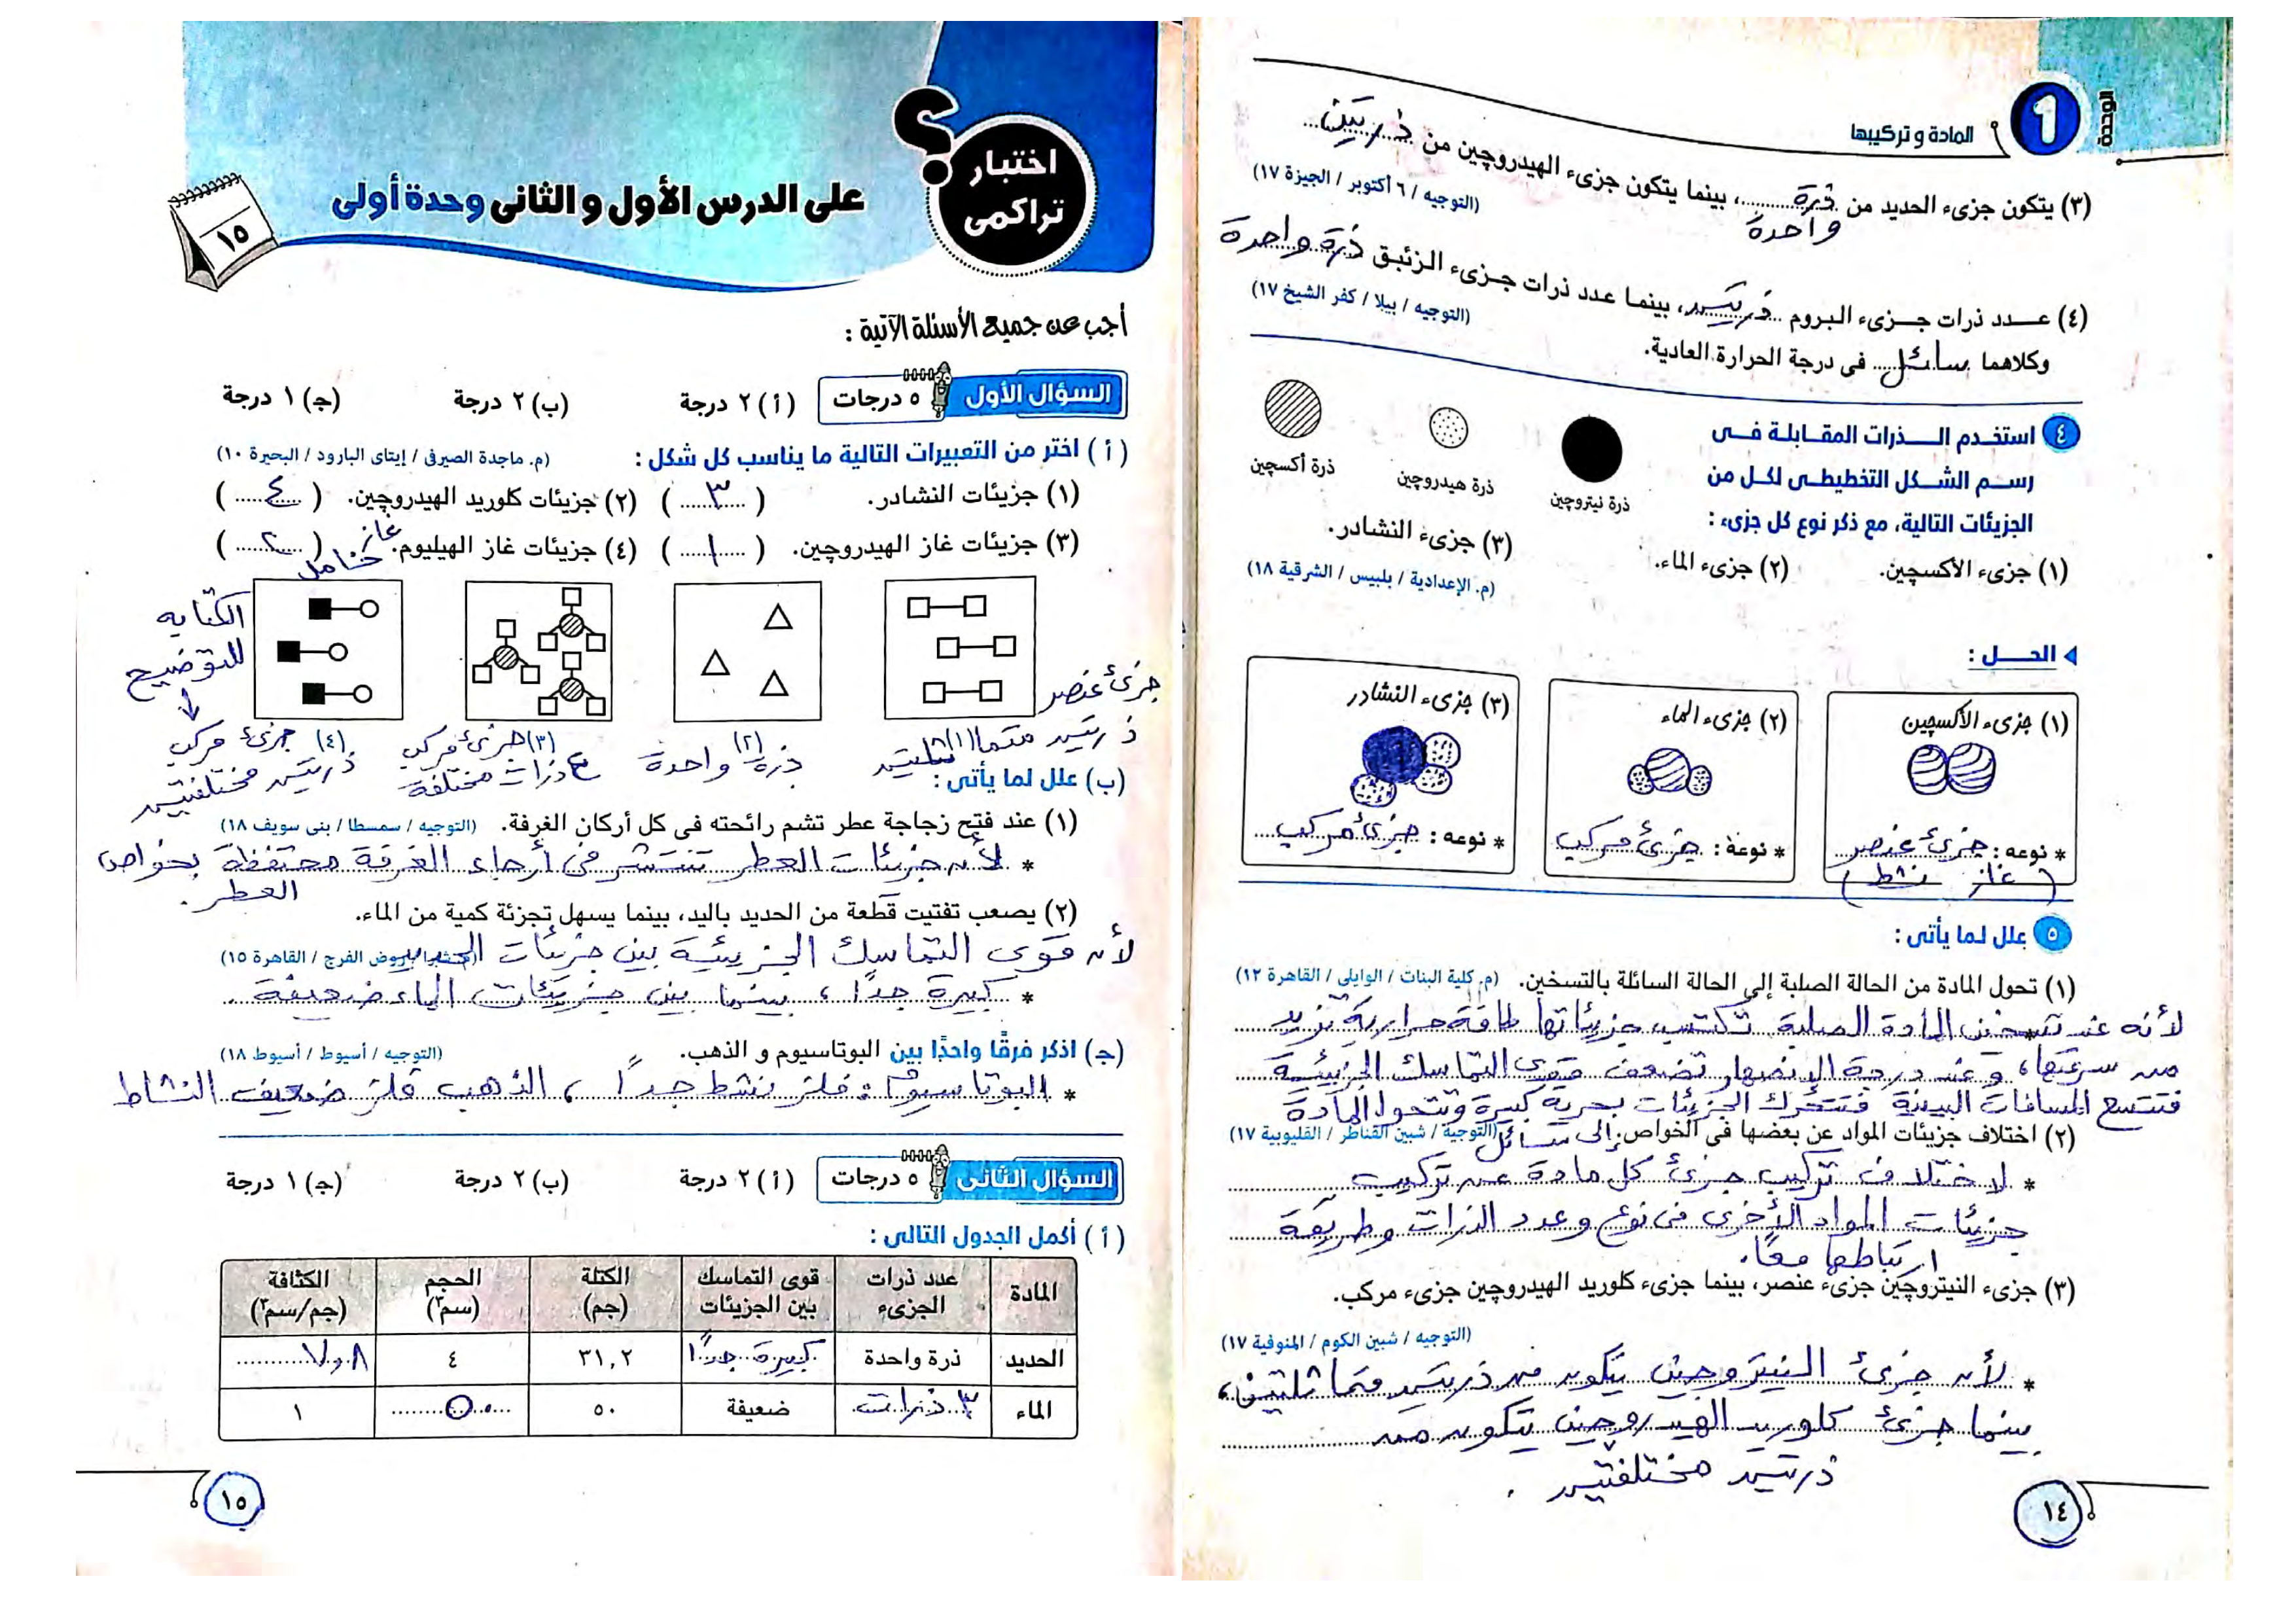 الوحدة
1
المادة و تركيبها
(٣) يتكون جزىء الحديد من ذرة واحدة، بينما يتكون جزىء الهيدروچين من ذرتين
(التوجيه / ٦ أكتوبر / الجيزة ١٧)
(٤) عدد ذرات جزىء البروم ذرتين، بينما عدد ذرات جزىء الزئبق ذرة واحدة
(التوجيه / بيلا / كفر الشيخ ١٧)
وكلاهما سائل فى درجة الحرارة العادية.
٤ استخدم الذرات المقابلة فى
رسم الشكل التخطيطى لكل من
الجزيئات التالية، مع ذكر نوع كل جزىء :
ذرة نيتروچين
ذرة هيدروچين
ذرة أكسچين
(١) جزىء الأكسچين. (٢) جزىء الماء. (٣) جزىء النشادر.
(م. الإعدادية / بلبيس / الشرقية ١٨)
الحل :
(١) جزىء الأكسچين
* نوعه : جزئ عنصر
(غاز نشط)
(٢) جزىء الماء
* نوعه : جزئ مركب
(٣) جزىء النشادر
* نوعه : جزئ مركب
٥ علل لما يأتى :
(١) تحول المادة من الحالة الصلبة إلى الحالة السائلة بالتسخين. (م. كلية البنات / الوايلى / القاهرة ١٢)
* لأنه عند تسخين المادة الصلبة تكتسب جزيئاتها طاقة حرارية تزيد
من سرعتها، وعند درجة الإنصهار تضعف قوى التماسك الجزيئية
فتتسع المسافات البينية فتتحرك الجزيئات بحرية كبيرة وتتحول المادة
إلى سائل
(٢) اختلاف جزيئات المواد عن بعضها فى الخواص. (التوجيه / شبين القناطر / القليوبية ١٧)
* لاختلاف تركيب جزئ كل مادة عن تركيب
جزيئات المواد الأخرى فى نوع وعدد الذرات وطريقة
ارتباطها معًا.
(٣) جزىء النيتروچين جزىء عنصر، بينما جزىء كلوريد الهيدروچين جزىء مركب.
(التوجيه / شبين الكوم / المنوفية ١٧)
* لأن جزئ النيتروجين يتكون من ذرتين متماثلتين،
بينما جزئ كلوريد الهيدروجين يتكون من
ذرتين مختلفتين.
١٤
اختبار
تراكمى
؟
على الدرس الأول و الثانى وحدة أولى
١٥
أجب عن جميع الأسئلة الآتية :
السؤال الأول ٥ درجات (أ) ٢ درجة (ب) ٢ درجة (جـ) ١ درجة
(أ) اختر من التعبيرات التالية ما يناسب كل شكل : (م. ماجدة الصيرفى / إيتاى البارود / البحيرة ١٠)
(١) جزيئات النشادر. (٣) (٢) جزيئات كلوريد الهيدروچين. (٤)
(٣) جزيئات غاز الهيدروچين. (١) (٤) جزيئات غاز الهيليوم. (٢)
غاز خامل
الكتابه
للتوضيح
جزئ عنصر
ذرتين متماثلتين
(١)
(٢)
ذرة واحدة
(٣) جزئ مركب
٤ ذرات مختلفة
(٤) جزئ مركب
ذرتين مختلفتين
(ب) علل لما يأتى :
(١) عند فتح زجاجة عطر تشم رائحته فى كل أركان الغرفة. (التوجيه / سمسطا / بنى سويف ١٨)
* لأن جزيئات العطر تنتشر فى أرجاء الغرفة محتفظة بخواص
العطر.
(٢) يصعب تفتيت قطعة من الحديد باليد، بينما يسهل تجزئة كمية من الماء.
روض الفرج / القاهرة ١٥)
لأن قوى التماسك الجزيئية بين جزيئات الحديد
* كبيرة جدًا، بينما بين جزيئات الماء ضعيفة.
(جـ) اذكر فرقًا واحدًا بين البوتاسيوم و الذهب. (التوجيه / أسيوط / أسيوط ١٨)
* البوتاسيوم : فلز نشط جدًا، الذهب فلز ضعيف النشاط
السؤال الثانى ٥ درجات (أ) ٢ درجة (ب) ٢ درجة (جـ) ١ درجة
(أ) أكمل الجدول التالى :
المادة | عدد ذرات الجزىء | قوى التماسك بين الجزيئات | الكتلة (جم) | الحجم (سم٣) | الكثافة (جم/سم٣)
الحديد | ذرة واحدة | كبيرة جدًا | ٣١,٢ | ٤ | ٧,٨
الماء | ٣ ذرات | ضعيفة | ٥٠ | ٥٠ | ١
١٥